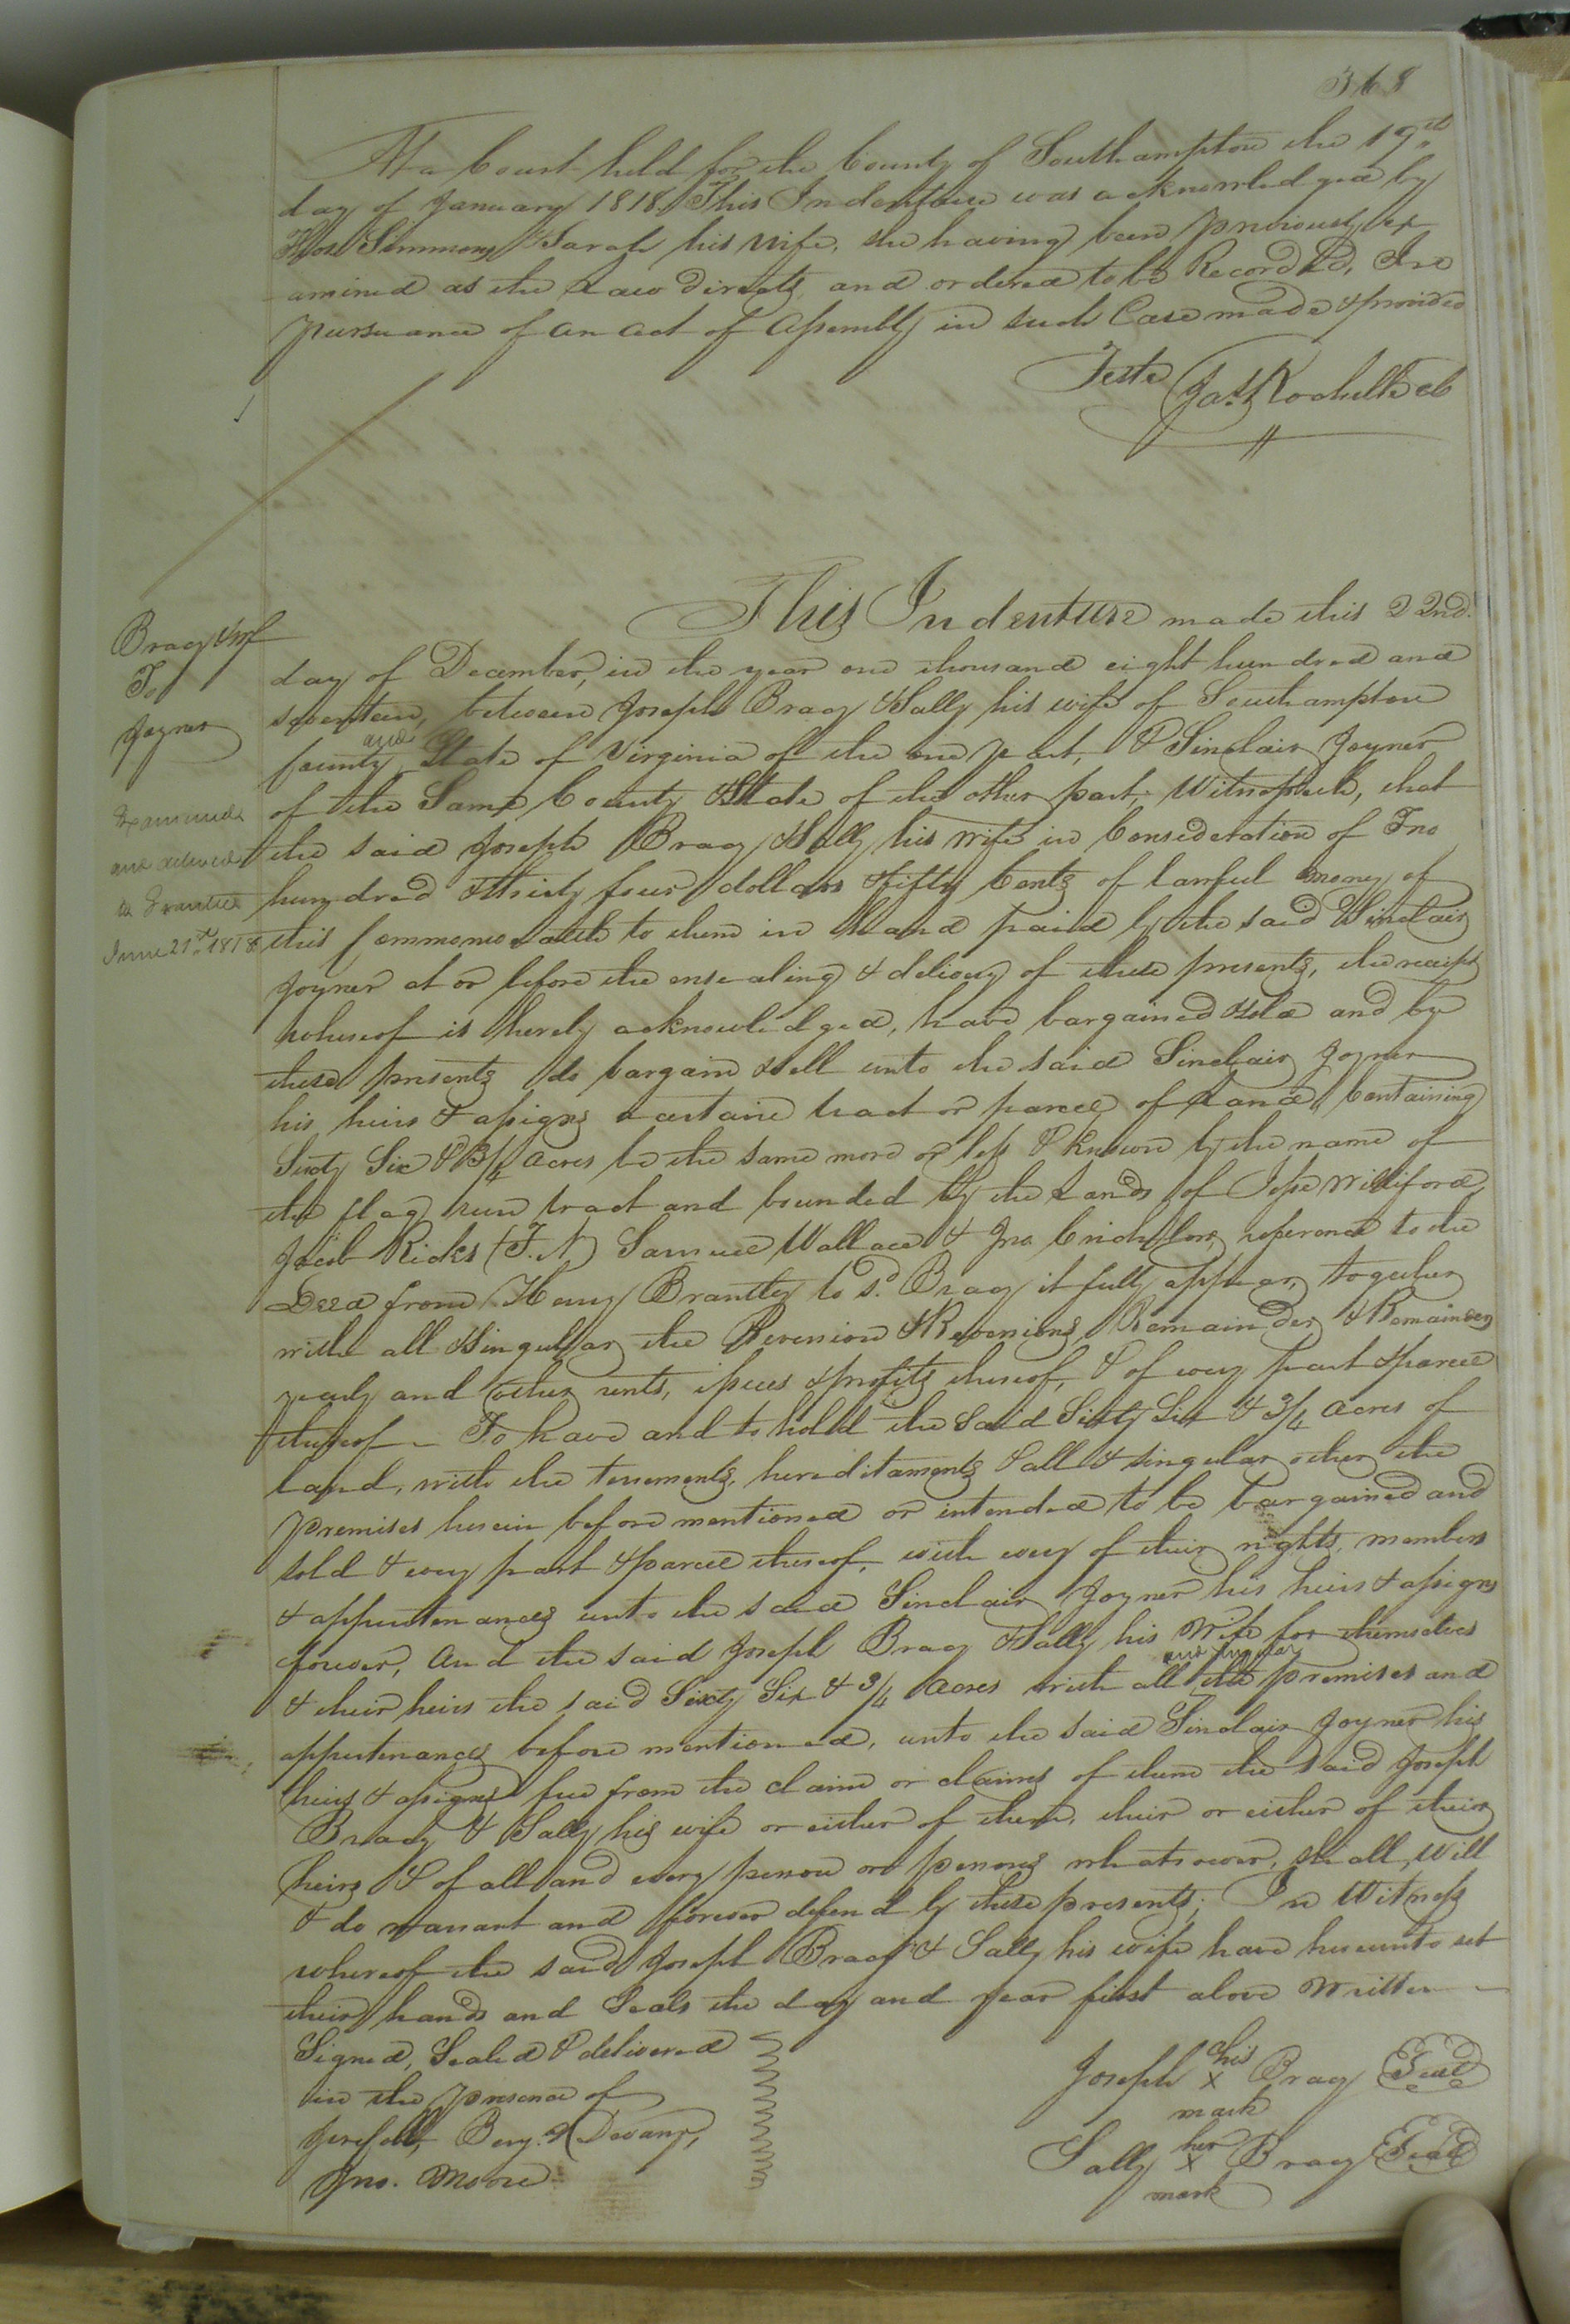 368
At a Court held for the County of Southampton the 19th
day of January 1818. This Indenture was acknowledged by
Simmons & Sarah his wife, she having been previously ex
amined as the Law directs, and ordered to be Recorded, In
pursuance of an act of Assembly in such Case made & provided
Teste Jas. Rochelle
Bracy & wf
To
Joyner
Examined
and delivered
to Grantee
June 21st 1818
This Indenture made this 22nd.
day of December, in the year one thousand eight hundred and
seventeen, between Joseph Bracy & Sally his wife of Southampton
County and State of Virginia of the one part, & Sinclair Joyner
of the Same County & State of the other part; Witnesseth, that
the said Joseph Bracy & Sally his wife in Consideration of Two
hundred & thirty four dollars & fifty Cents of lawful money of
this Commonwealth to them in hand paid by the said Sinclair
Joyner at or before the ensealing & delivery of these presents, the receipt
whereof is hereby acknowledged, have bargained & sold and by
these presents do bargain & sell unto the said Sinclair Joyner
his heirs & assigns a certain tract or parcel of Land, Containing
Sixty Six & 3/4 Acres be the same more or less & known by the name of
the flag run tract and bounded by the Lands of Jesse Williford,
Jacob Ricks (F. N) Samuel Wallace & Jno. Crichlow, reference to the
Deed from Henry Brantley to sd. Bracy it fully appear, together
with all & Singular the Reversion & Reversions, Remainder & Remainders
yearly and other rents, issues & profits thereof, & of every part & parcel
thereof - To have and to hold the Said Sixty Six & 3/4 acres of
land, with the tenements, hereditaments & all & singular other the
premises herein before mentioned or intended to be bargained and
sold & every part & parcel thereof, with every of their rights, members
& appurtenances unto the said Sinclair Joyner his heirs & assigns
forever, And the said Joseph Bracy & Sally his Wife for themselves
& their heirs the said Sixty Six & 3/4 Acres with all and singular the premises and
appurtenances before mentioned, unto the said Sinclair Joyner his
heirs & assigns free from the claim or claims of them the said Joseph
Bracy & Sally his wife or either of them, their or either of their
heirs & of all and every person or persons whatsoever, shall, will
& do warrant and forever defend by these presents; In Witness
whereof the said Joseph Bracy & Sally his wife have hereunto set
their hands and Seals the day and year first above Written -
Signed, Sealed & delivered
in the presence of
Benj. Devany,
Jno. Moore
Joseph his x mark Bracy Seal
Sally her x mark Bracy Seal